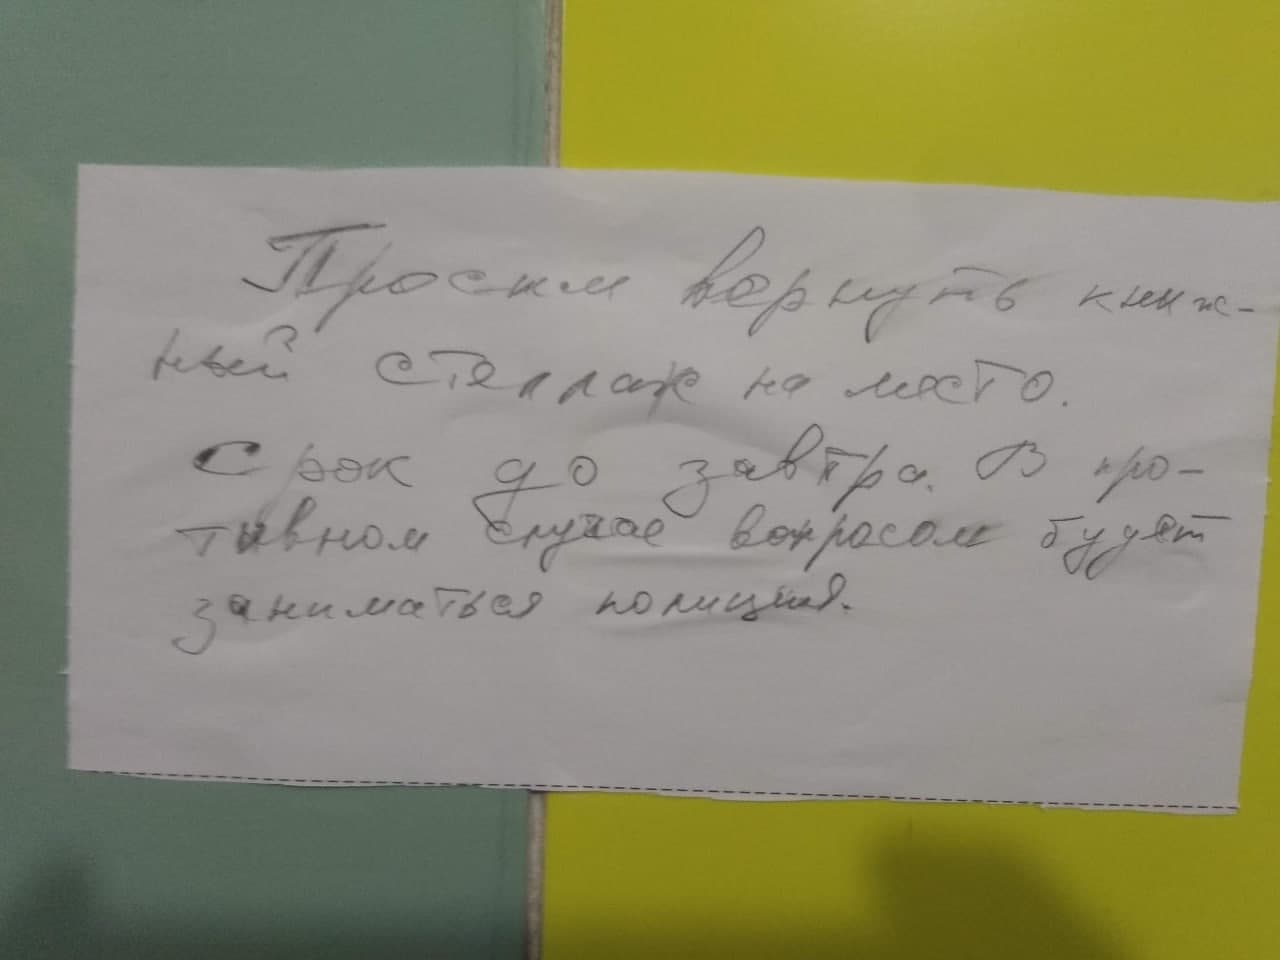 Просим вернуть книж-
ный стеллаж на место.
Срок до завтра. В про-
тивном случае вопросом будет
заниматься полиция.